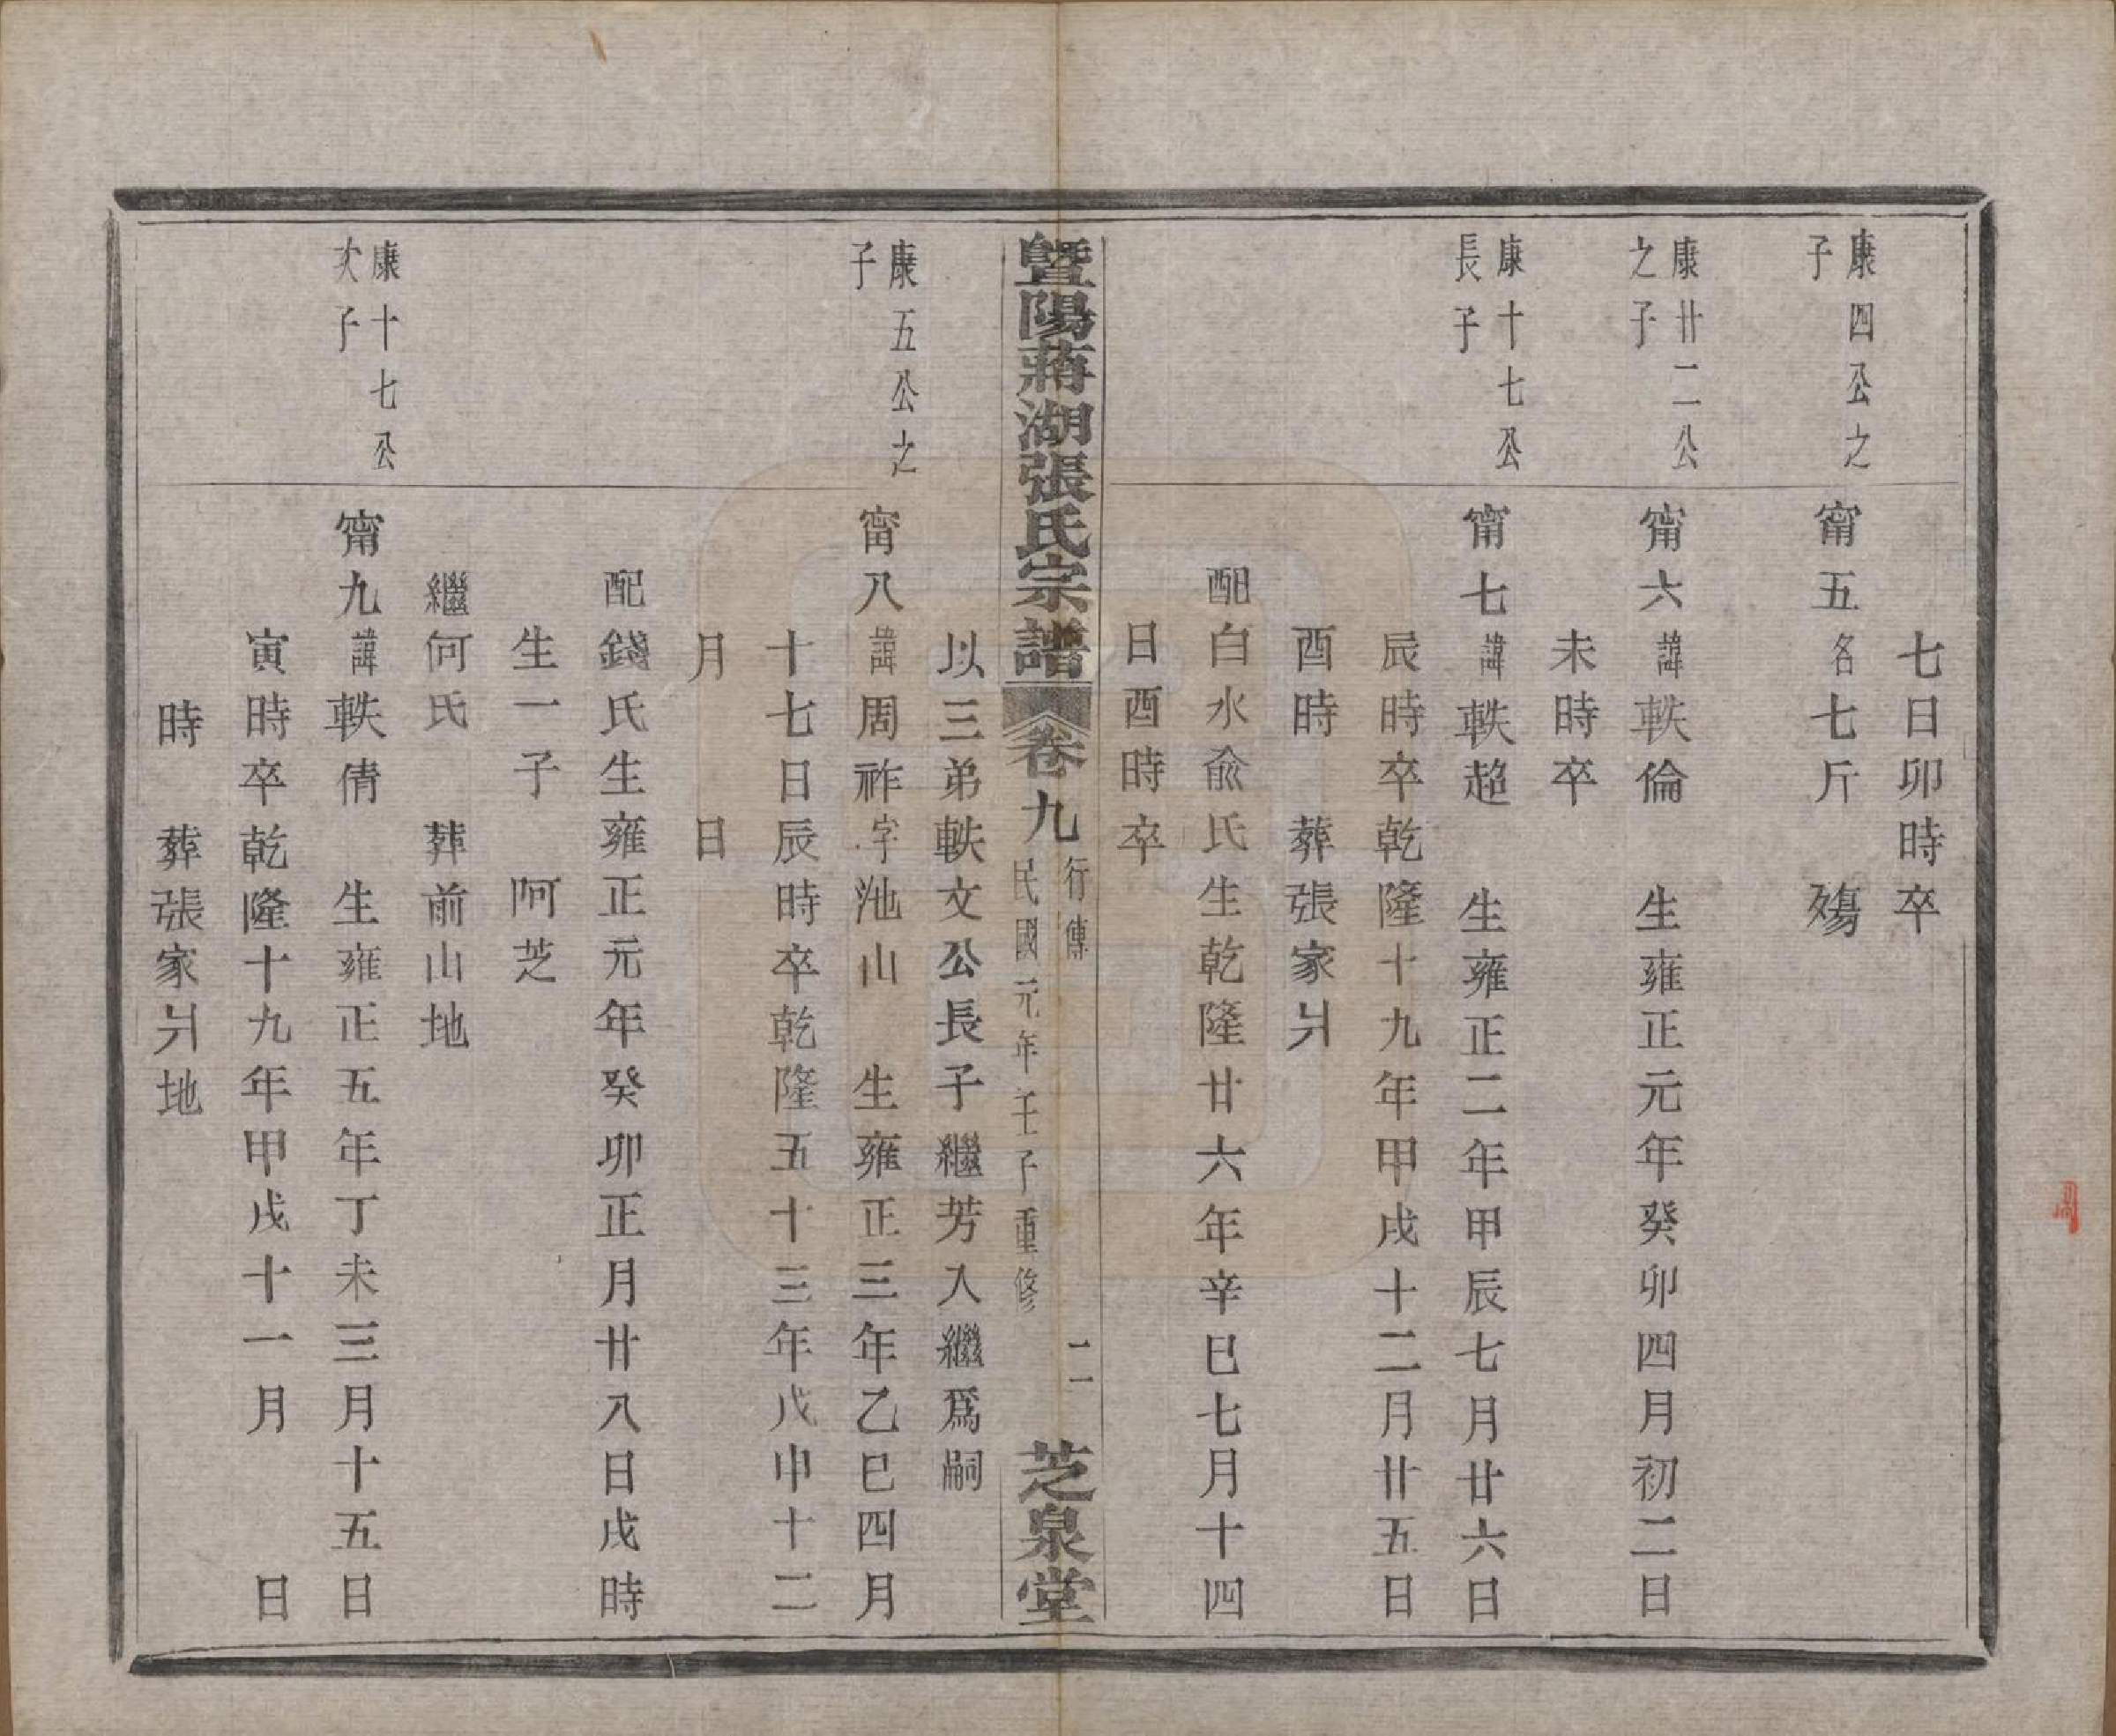 七日卯時卒
康四公之
子
甯五名七斤　殤
康廿二公
之子
甯六諱軼倫　生雍正元年癸卯四月初二日
未時卒
康十七公
長子
甯七諱軼超　生雍正二年甲辰七月廿六日
辰時卒乾隆十九年甲戌十二月廿五日
酉時　葬張家爿
配白水兪氏生乾隆廿六年辛巳七月十四
日酉時卒
暨陽蔣湖張氏宗譜
卷九
行傳
民國元年壬子重修
二
芝泉堂
以三弟軼文公長子繼芳入繼爲嗣
康五公之
子
甯八諱周祚字池山　生雍正三年乙巳四月
十七日辰時卒乾隆五十三年戊申十二
月　　日
配錢氏生雍正元年癸卯正月廿八日戌時
生一子　阿芝
繼何氏　葬前山地
康十七公
次子
甯九諱軼倩　生雍正五年丁未三月十五日
寅時卒乾隆十九年甲戌十一月　　日
時　葬張家爿地